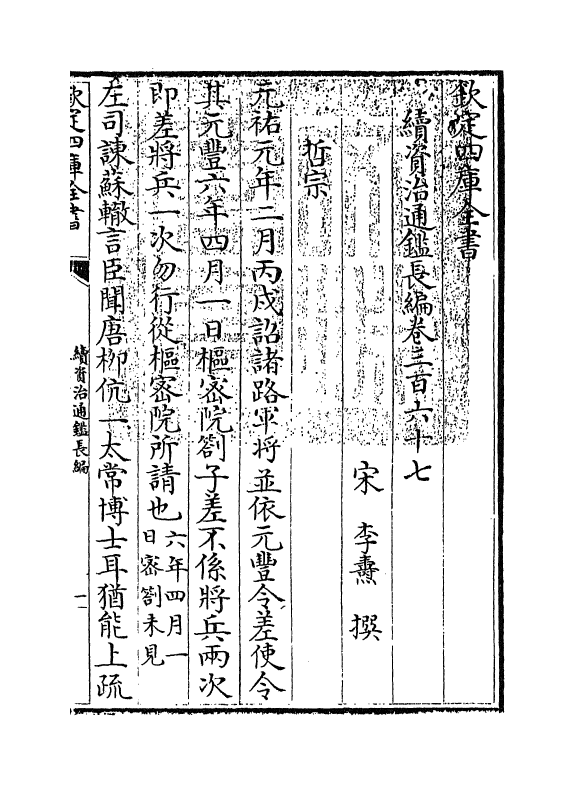 欽定四庫全書
續資治通鑑長編卷三百六十七
宋 李燾 撰
哲宗
元祐元年二月丙戌詔諸路軍將並依元豐令差使令
其元豐六年四月一日樞密院劄子差不係將兵兩次
即差將兵一次勿行從樞密院所請也六年四月一
日密劄未見
左司諫蘇轍言臣聞唐柳伉一太常博士耳猶能上疏
欽定四庫全書
續資治通鑑長編
一